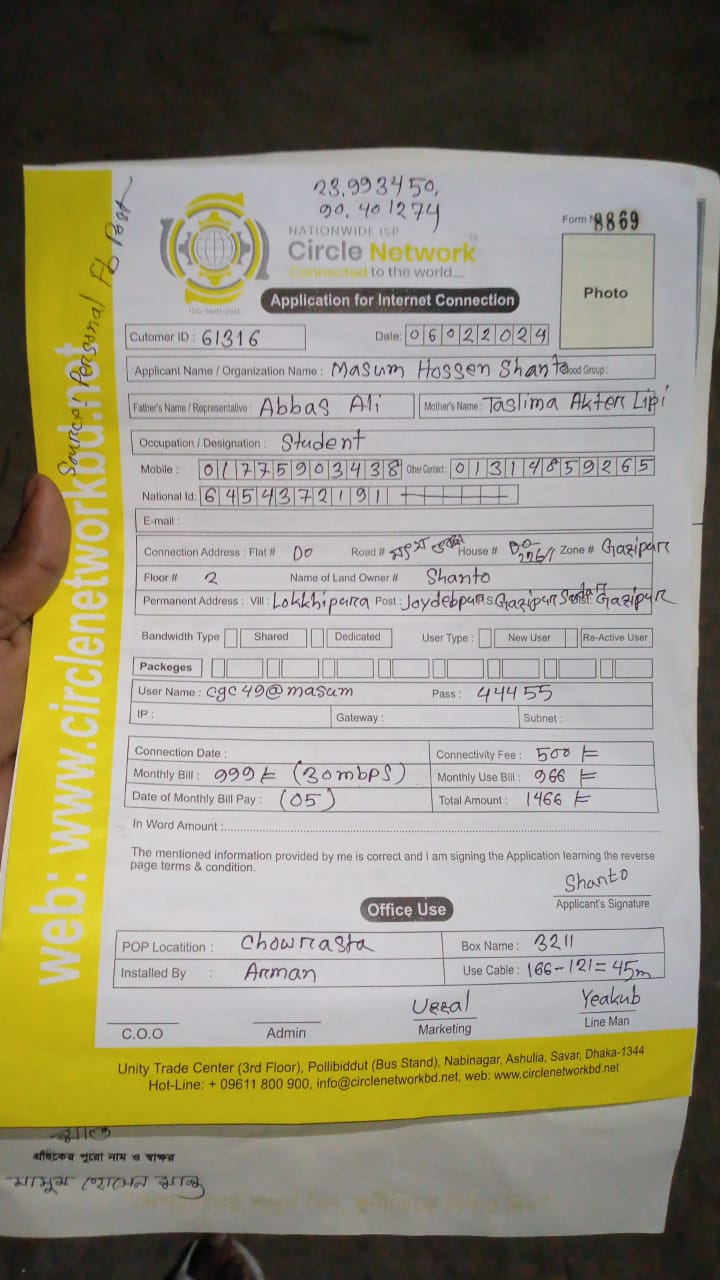 23.993450,
90.401274
NATIONWIDE ISP
Circle Network
Connected to the world....
ISO 9001:2015
Form 8869
Photo
Application for Internet Connection
Cutomer ID : 61316 Date: 06022024
Applicant Name / Organization Name : Masum Hossen Shanto ood Group :
Father's Name / Representative : Abbas Ali Mother's Name : Taslima Akter Lipi
Occupation / Designation : Student
Mobile : 01775903438 Other Contact : 01314859265
National Id: 6454372191
E-mail :
Connection Address : Flat # DO Road # House # DO 226/1 Zone # Gazipur
Floor # 2 Name of Land Owner # Shanto
Permanent Address : Vill : Lokkhipura Post : Joydebpur Gazipur Sadar Gazipur
Bandwidth Type Shared Dedicated User Type : New User Re-Active User
Packeges
User Name : cgc49@masum Pass : 44455
IP : Gateway : Subnet :
Connection Date : Connectivity Fee : 500 ৳
Monthly Bill : 999 ৳ (30mbps) Monthly Use Bill : 966 ৳
Date of Monthly Bill Pay : (05) Total Amount : 1466 ৳
In Word Amount :
The mentioned information provided by me is correct and I am signing the Application learning the reverse
page terms & condition.
Shanto
Applicant's Signature
Office Use
POP Locatition : Chowrasta Box Name : 3211
Installed By : Arman Use Cable : 166-121=45m
Uzzal Yeakub
C.O.O Admin Marketing Line Man
Unity Trade Center (3rd Floor), Pollibiddut (Bus Stand), Nabinagar, Ashulia, Savar, Dhaka-1344
Hot-Line: + 09611 800 900, info@circlenetworkbd.net, web: www.circlenetworkbd.net
web: www.circlenetworkbd.net
Source: Personal Fb Post
গ্রাহকের পুরো নাম ও স্বাক্ষর
মাসুম হোসেন শান্ত